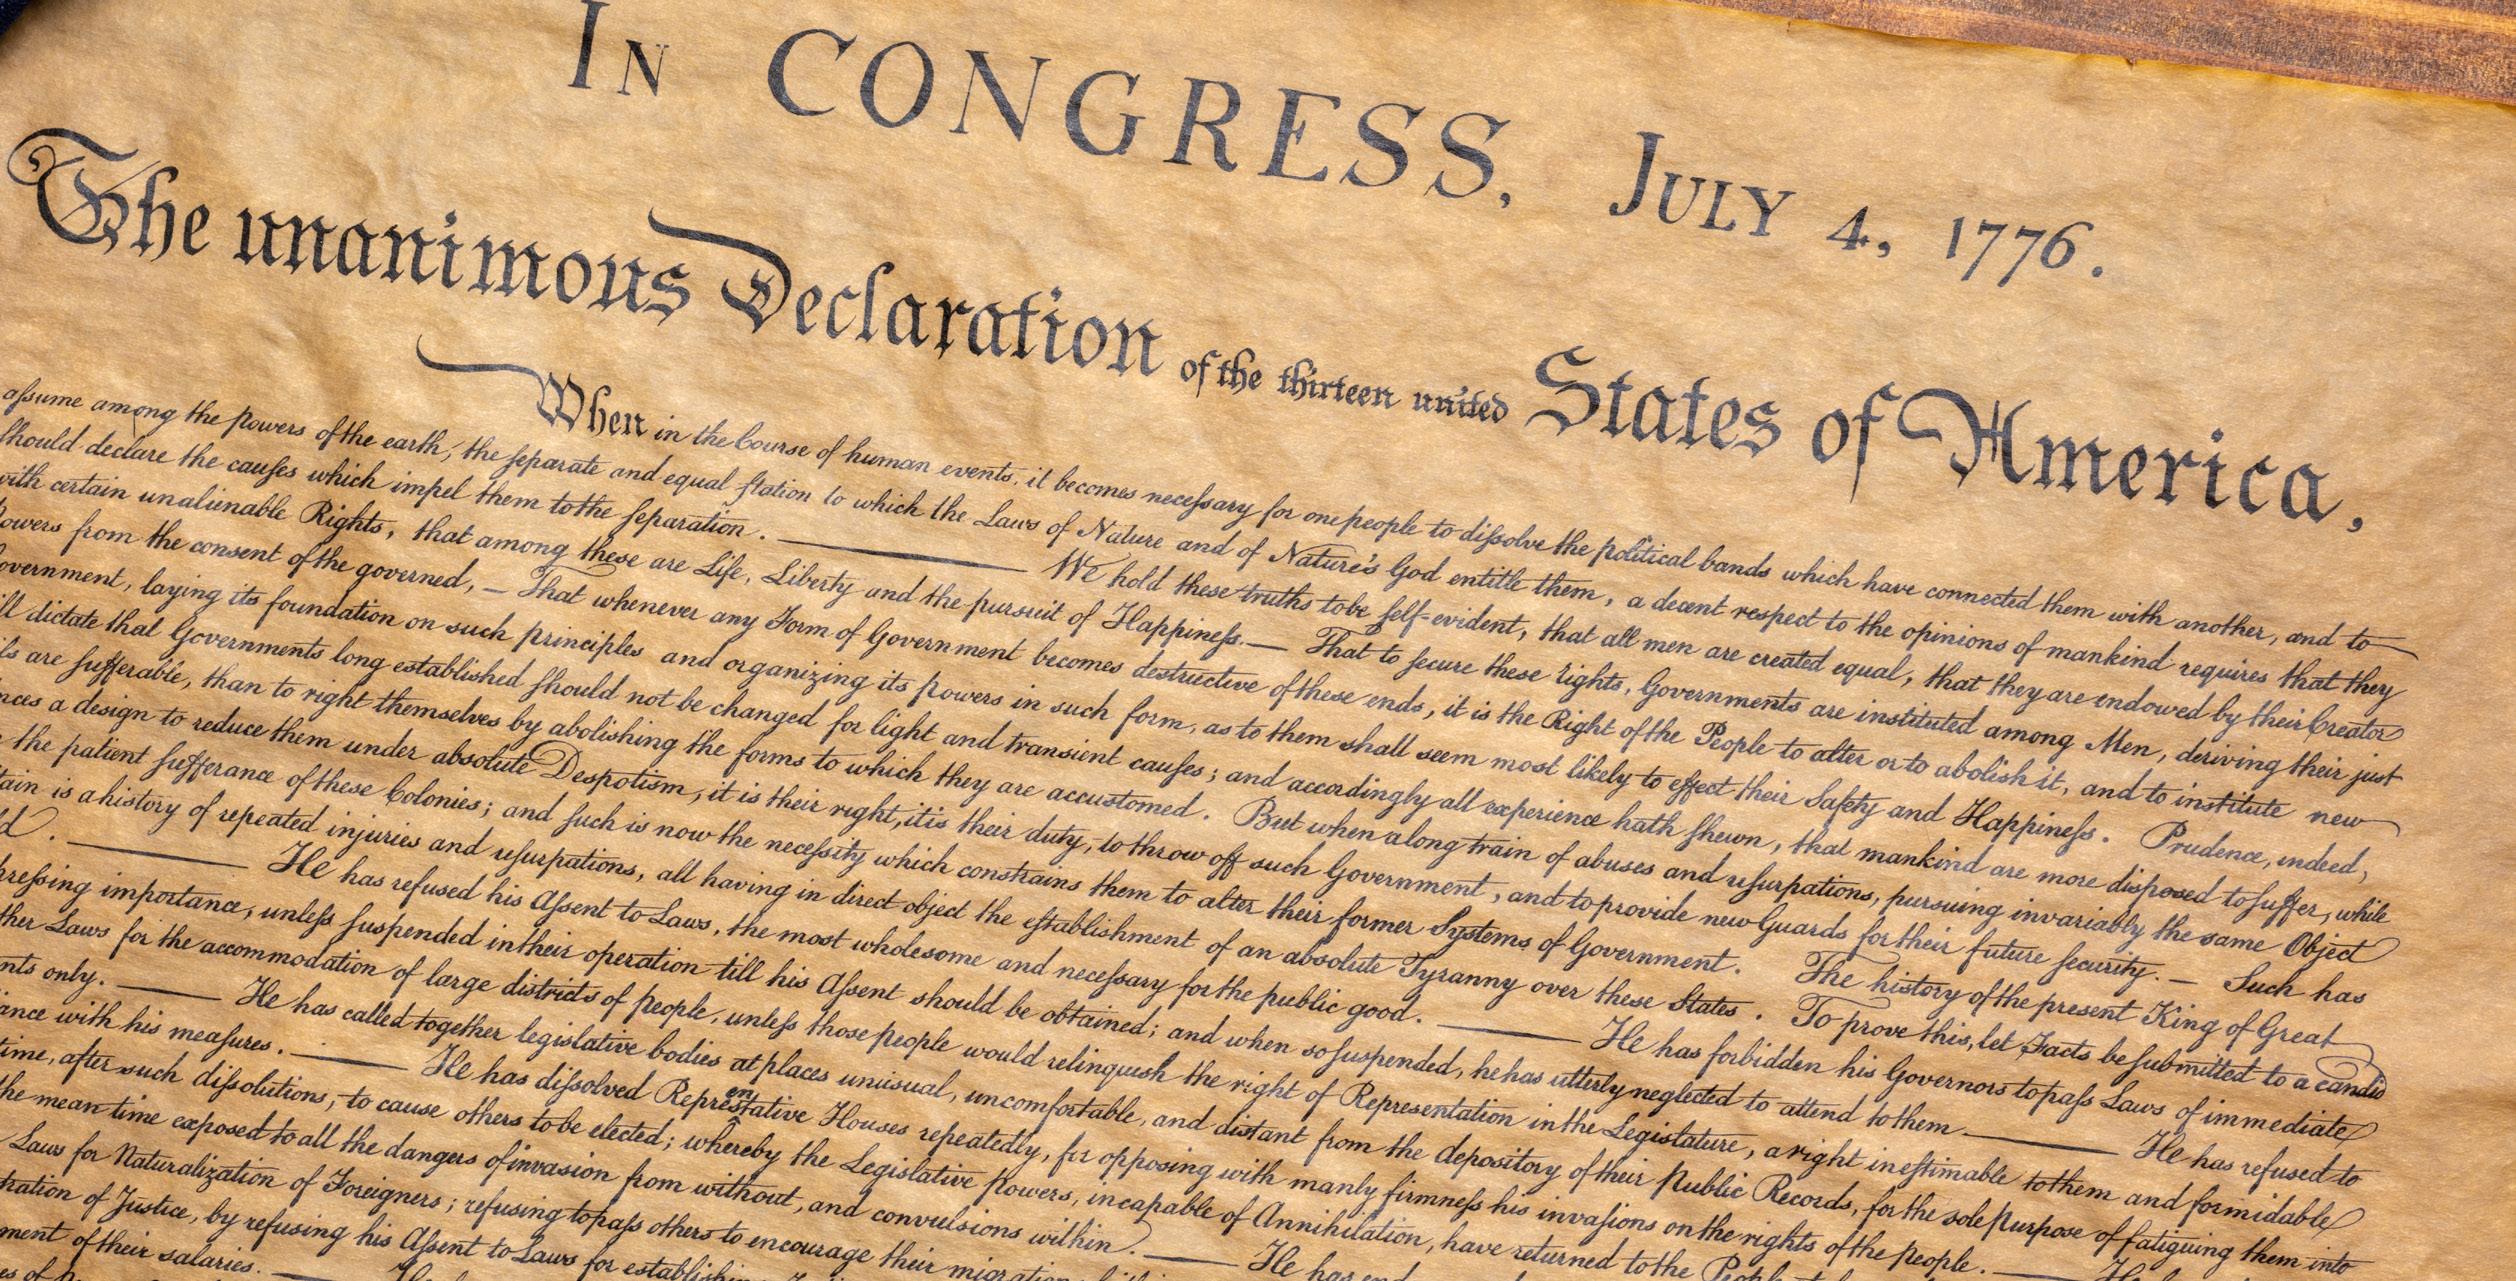 In CONGRESS, July 4, 1776.
The unanimous Declaration of the thirteen united States of America,
When in the Course of human events, it becomes necessary for one people to dissolve the political bands which have connected them with another, and to
assume among the powers of the earth, the separate and equal station to which the Laws of Nature and of Nature's God entitle them, a decent respect to the opinions of mankind requires that they
should declare the causes which impel them to the separation. — We hold these truths to be self-evident, that all men are created equal, that they are endowed by their Creator
with certain unalienable Rights, that among these are Life, Liberty and the pursuit of Happiness.— That to secure these rights, Governments are instituted among Men, deriving their just
powers from the consent of the governed, — That whenever any Form of Government becomes destructive of these ends, it is the Right of the People to alter or to abolish it, and to institute new
overnment, laying its foundation on such principles and organizing its powers in such form, as to them shall seem most likely to effect their Safety and Happiness. Prudence, indeed,
ll dictate that Governments long established should not be changed for light and transient causes; and accordingly all experience hath shewn, that mankind are more disposed to suffer, while
ils are sufferable, than to right themselves by abolishing the forms to which they are accustomed. But when a long train of abuses and usurpations, pursuing invariably the same Object
nces a design to reduce them under absolute Despotism, it is their right, it is their duty, to throw off such Government, and to provide new Guards for their future security. — Such has
the patient sufferance of these Colonies; and such is now the necessity which constrains them to alter their former Systems of Government. The history of the present King of Great
tain is a history of repeated injuries and usurpations, all having in direct object the establishment of an absolute Tyranny over these States. To prove this, let Facts be submitted to a candid
ld. — He has refused his Assent to Laws, the most wholesome and necessary for the public good. — He has forbidden his Governors to pass Laws of immediate
ressing importance, unless suspended in their operation till his Assent should be obtained; and when so suspended, he has utterly neglected to attend to them. — He has refused to
ther Laws for the accommodation of large districts of people, unless those people would relinquish the right of Representation in the Legislature, a right inestimable to them and formidable
nts only. — He has called together legislative bodies at places unusual, uncomfortable, and distant from the depository of their Public Records, for the sole purpose of fatiguing them into
ance with his measures. — He has dissolved Representative Houses repeatedly, for opposing with manly firmness his invasions on the rights of the people. — He
time, after such dissolutions, to cause others to be elected; whereby the Legislative powers, incapable of Annihilation, have returned to the People
the mean time exposed to all the dangers of invasion from without, and convulsions within. — He has end
Laws for Naturalization of Foreigners; refusing to pass others to encourage their migration
tration of Justice, by refusing his Assent to Laws for establishing
ment of their salaries. — He